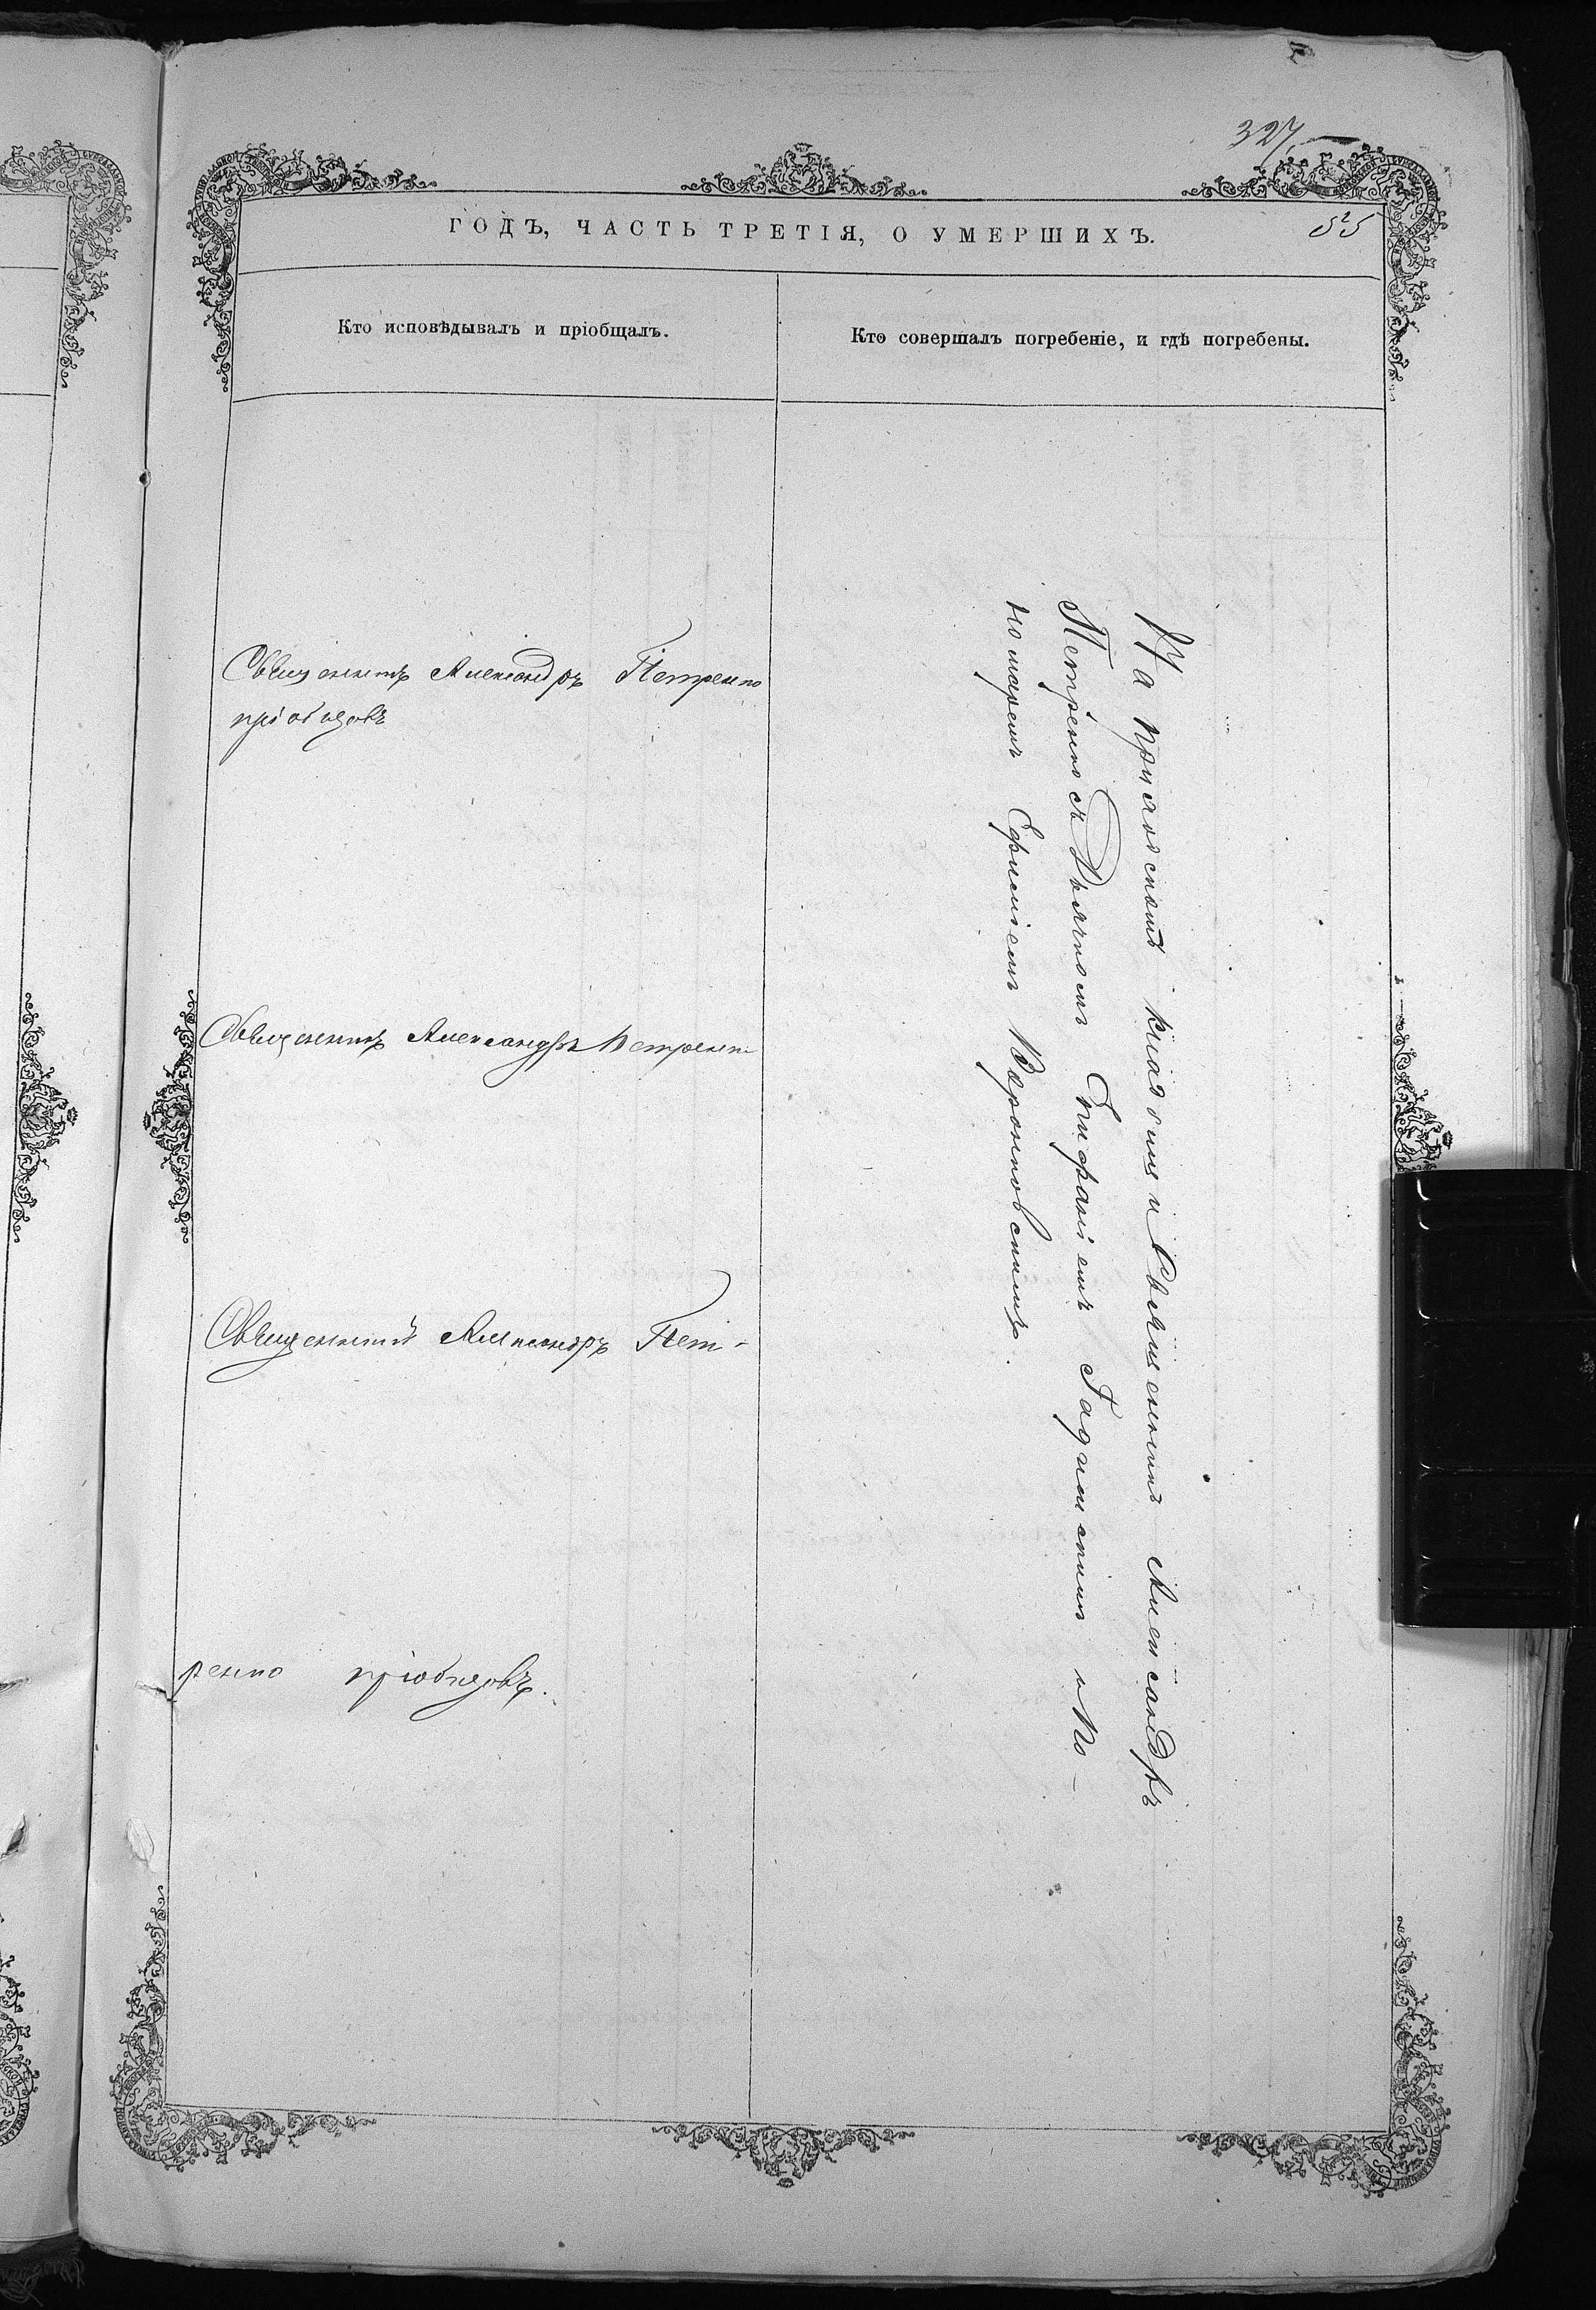 327.
ГОДЪ, ЧАСТЬ ТРЕТІЯ, О УМЕРШИХЪ.
525
Кто исповѣдывалъ и пріобщалъ.
Кто совершалъ погребеніе, и гдѣ погребены.
Священникъ Александръ Петренко
пріобщовъ
Священникъ Александръ Петренко
Священникъ Александръ Пет-
ренко пріобщовъ.
На приходскомъ кладбищи Священникъ Александръ
Петренко съ Дьячкомъ Епифаніемъ Гадимскимъ и По-
номаремъ Ефиміемъ Воронковскимъ.